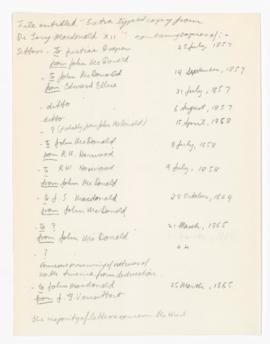 File entitled "Extra typed copy from
De Lery Macdonald XII" containing copies of :-
Letters - to Justice Draper 23 July, 1857
from John McDonald
- to John McDonald 14 September, 1857
from Edward Ellice
- ditto 31 July, 1857
ditto 6 August, 1857
- ? (probably from John McDonald) 15 April, 1858
- to John McDonald 8 July, 1858
from R.W. Harwood
- to R.W. Harwood 9 July, 1858
from John McDonald
- to J. S. Macdonald 28 October, 1864
from John Macdonald
- to ? 21 March, 1865
from John McDonald
- ?
North America from destruction
- to John Macdonald 25 March, 1865
from J. G. Vansittart
The majority of letters concern the West